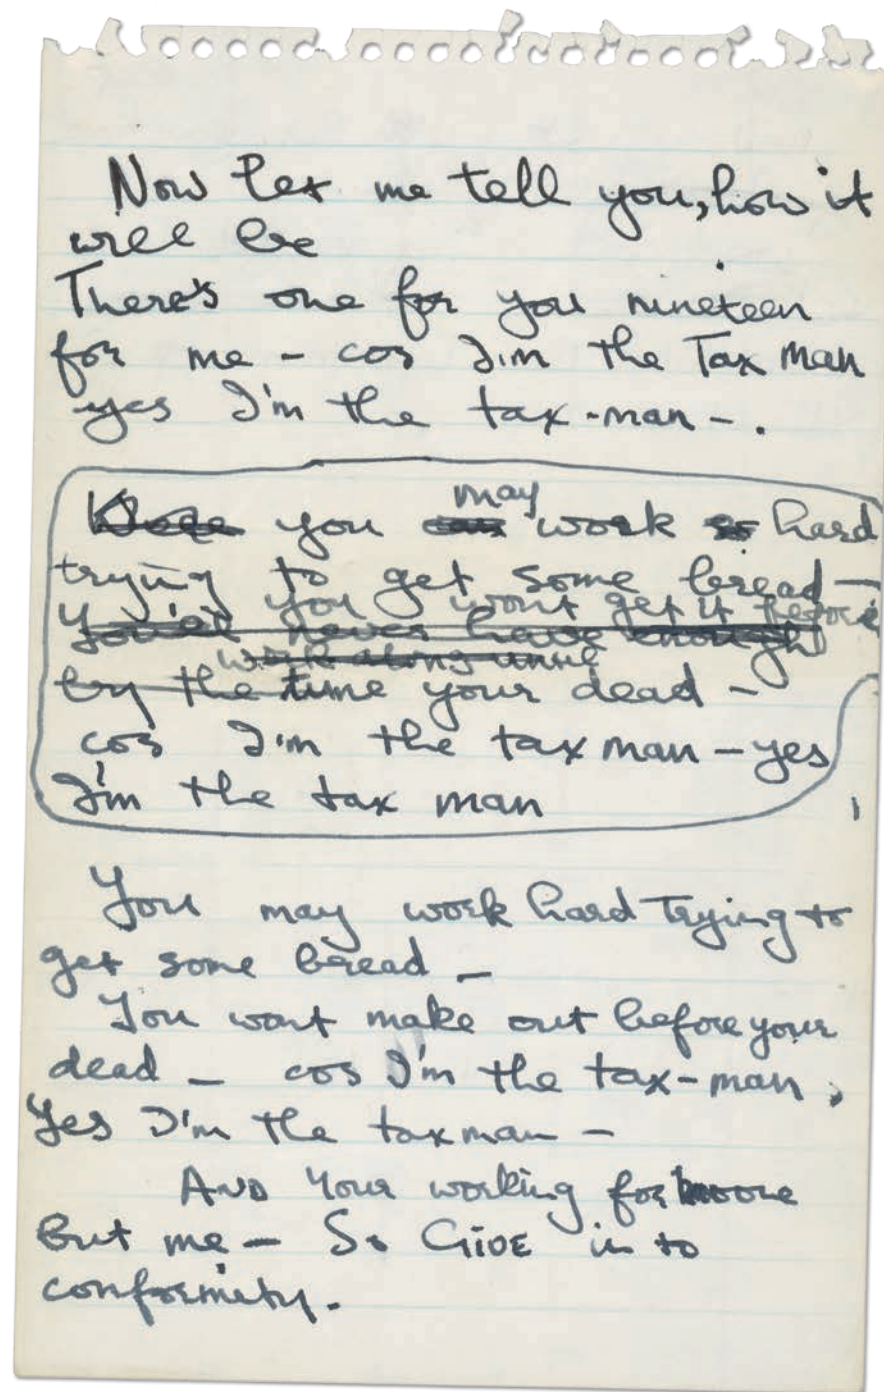 Now let me tell you, how it
will be
There's one for you nineteen
for me – cos I'm the Tax Man
yes I'm the tax-man – .
may
you work hard
trying to get some bread –
you wont get it before
You'll never have enough
work along until
by the time your dead –
cos I'm the tax man – yes
I'm the tax man
You may work hard Trying to
get some bread –
You wont make out before your
dead – cos I'm the tax-man,
Yes I'm the taxman –
AND Your working for
But me – So GIVE in to
conformity.